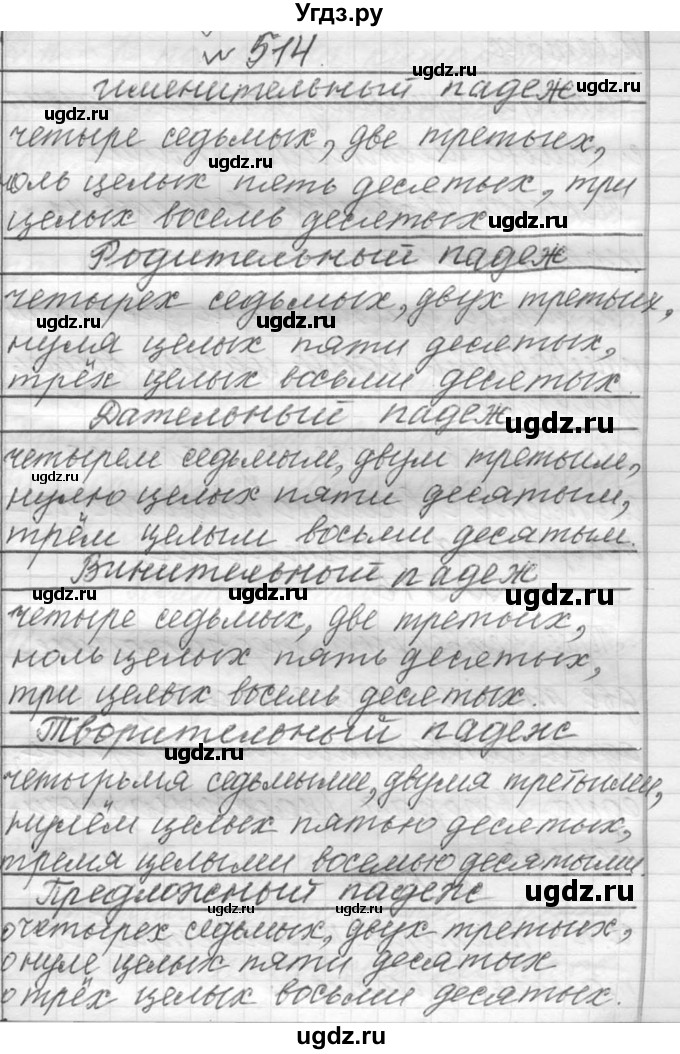 Угдз.ру
№ 514.
Именительный падеж
четыре седьмых, две третьих,
ноль целых пять десятых, три
целых восемь десятых
Родительный падеж
четырех седьмых, двух третьих,
нуля целых пяти десятых,
трёх целых восьми десятых.
Дательный падеж
четырем седьмым, двум третьим,
нулю целых пяти десятым,
трём целым восьми десятым.
Винительный падеж
четыре седьмых, две третьих,
ноль целых пять десятых,
три целых восемь десятых.
Творительный падеж
четырьмя седьмыми, двумя третьими,
нулём целых пятью десятых,
тремя целыми восемью десятыми
Предложный падеж
о четырех седьмых, двух третьих,
о нуле целых пяти десятых
о трёх целых восьми десятых.
ugdz.ru